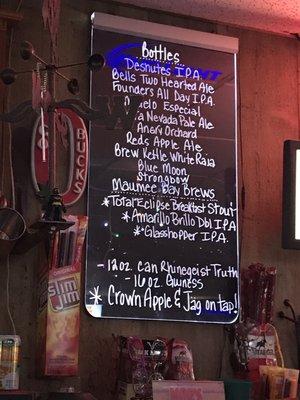 Bottles
Deshutes I.P.A.
Bells Two Hearted Ale
Founders All Day I.P.A.
elo Especial
a Nevada Pale Ale
Angry Orchard
Reds Apple Ale
Brew Kettle White Raja
Blue Moon
Strongbow
Maumee Bay Brews
*Total Eclipse Breakfast Stout
*Amarillo Brillo Dbl I.P.A
*Glasshopper I.P.A.
-12oz. Can Rhinegeist Truth
-16oz Guiness
* Crown Apple & Jag on tap!
BUCKS
Slim
Jim